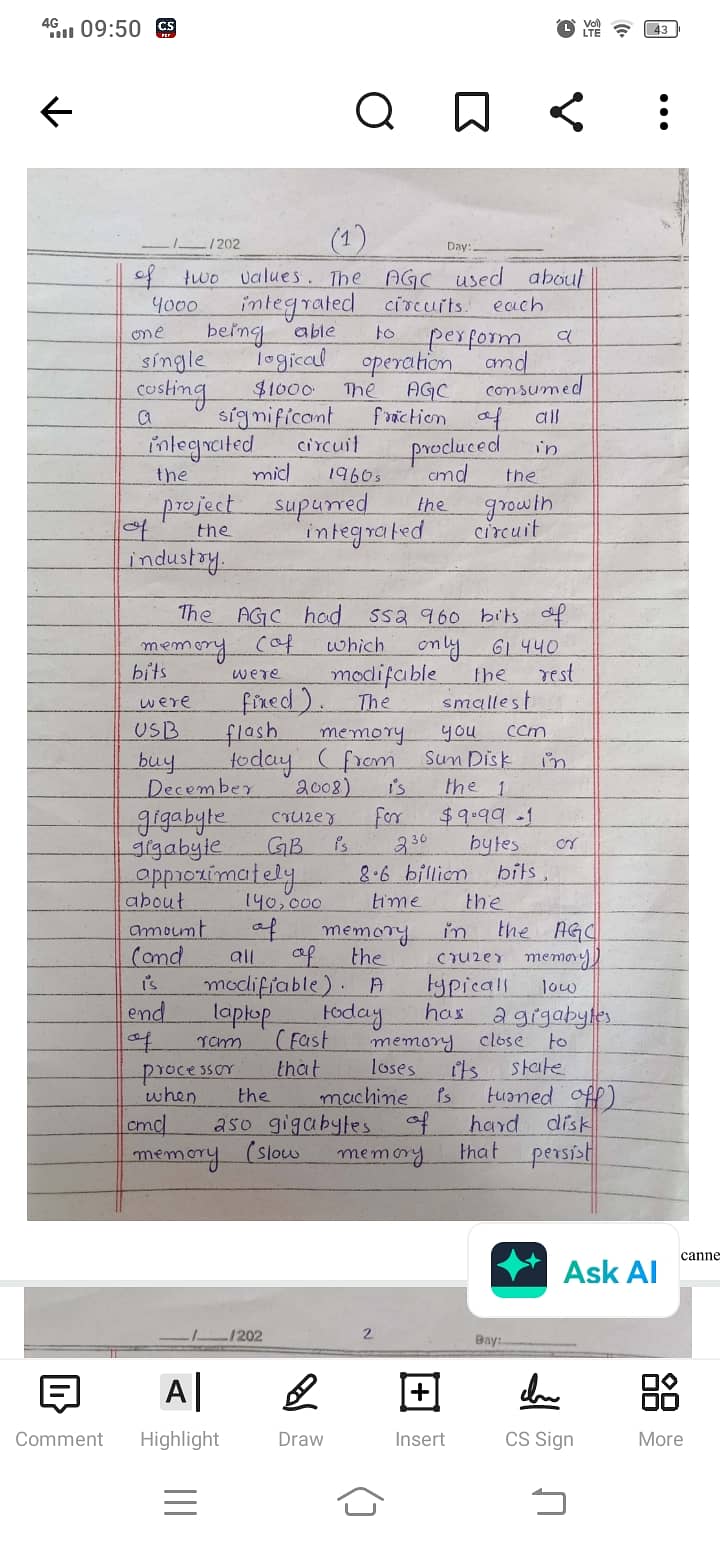 4G 09:50 CS PDF Vo) LTE 43
__/__/202 (1) Day:
of two values. The AGC used about
4000 integrated circuits. each
one being able to perform a
single logical operation and
costing $1000. The AGC consumed
a significant fraction of all
integrated circuit produced in
the mid 1960s and the
project supurred the growth
of the integrated circuit
industry.
The AGC had 552 960 bits of
memory (of which only 61 440
bits were modifable the rest
were fixed). The smallest
USB flash memory you can
buy today (from Sun Disk in
December 2008) is the 1
gigabyte cruzer for $9.99 -1
gigabyte GB is 2³⁰ bytes or
approximately 8.6 billion bits,
about 140,000 time the
amount of memory in the AGC
(and all of the cruzer memory)
is modifiable). A typicall low
end laptop today has 2 gigabytes
of ram (Fast memory close to
processor that loses its state
when the machine is turned off)
and 250 gigabytes of hard disk
memory (slow memory that persist
canne
Ask AI
__/__/202 2 Day:
Comment Highlight Draw Insert CS Sign More